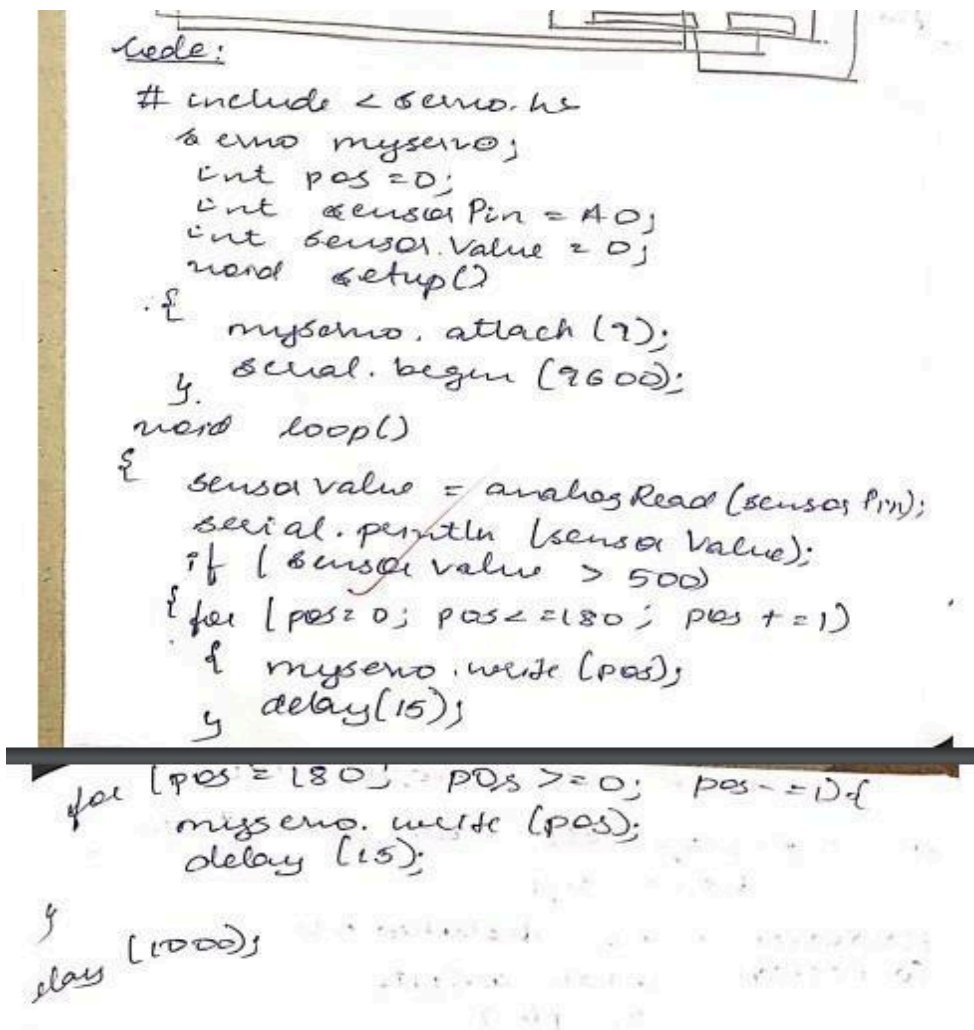 Code:
# include < servo.h>
servo myservo;
int pos = 0;
int sensor Pin = A0;
int sensor.Value = 0;
void setup()
{
myservo. attach (9);
serial. begin (9600);
}.
void loop()
{
sensor value = analog Read (sensor Pin);
serial. println (sensor Value);
if ( sensor value > 500)
{ for (pos = 0; pos <=180; pos +=1)
{ myservo.write (pos);
} delay(15);
for (pos = 180; pos >= 0; pos -=1){
myservo. write (pos);
delay (15);
}
elay (1000);